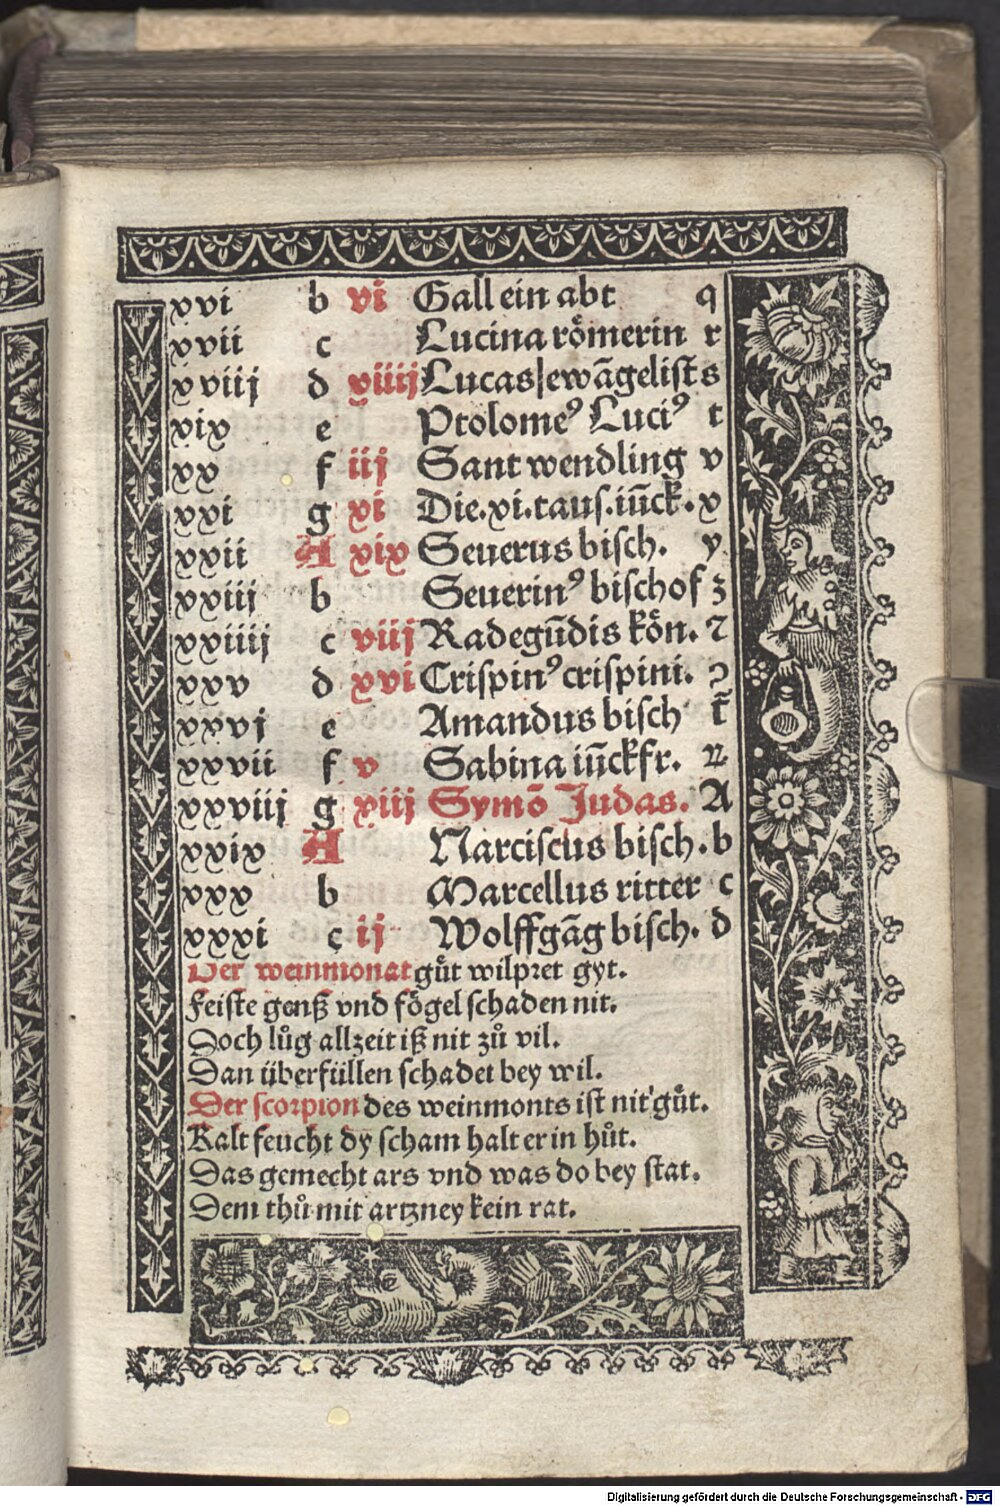 xvi b vi Gall ein abt q
xvii c Lucina roͤmerin r
xviij d xiiij Lucas|ewāgelist s
xix e Ptolomeꝰ Luciꝰ t
xx f iij Sant wendling v
xxi g xi Die.xi.taus.iūck. x
xxii A xix Seuerus bisch. y
xxiij b Seuerinꝰ bischof z
xxiiij c viij Radegūdis koͤn. ⁊
xxv d xvi Crispinꝰ crispini. ꝯ
xxvj e Amandus bisch t̄
xxvii f v Sabina iūckfr.
xxviij g xiij Symō Judas. A
xxix A Narciscus bisch. b
xxx b Marcellus ritter c
xxxi c ij Wolffgāg bisch. d
Der weinmonat guͦt wilpret gyt.
Feiste genß vnd foͤgel schaden nit.
Doch luͦg allzeit iß nit zuͦ vil.
Dan überfüllen schadet bey wil.
Der scorpion des weinmonts ist nit guͦt.
Kalt feucht dy scham halt er in huͦt.
Das gemecht ars vnd was do bey stat.
Dem thuͦ mit artzney kein rat.
Digitalisierung gefördert durch die Deutsche Forschungsgemeinschaft - DFG